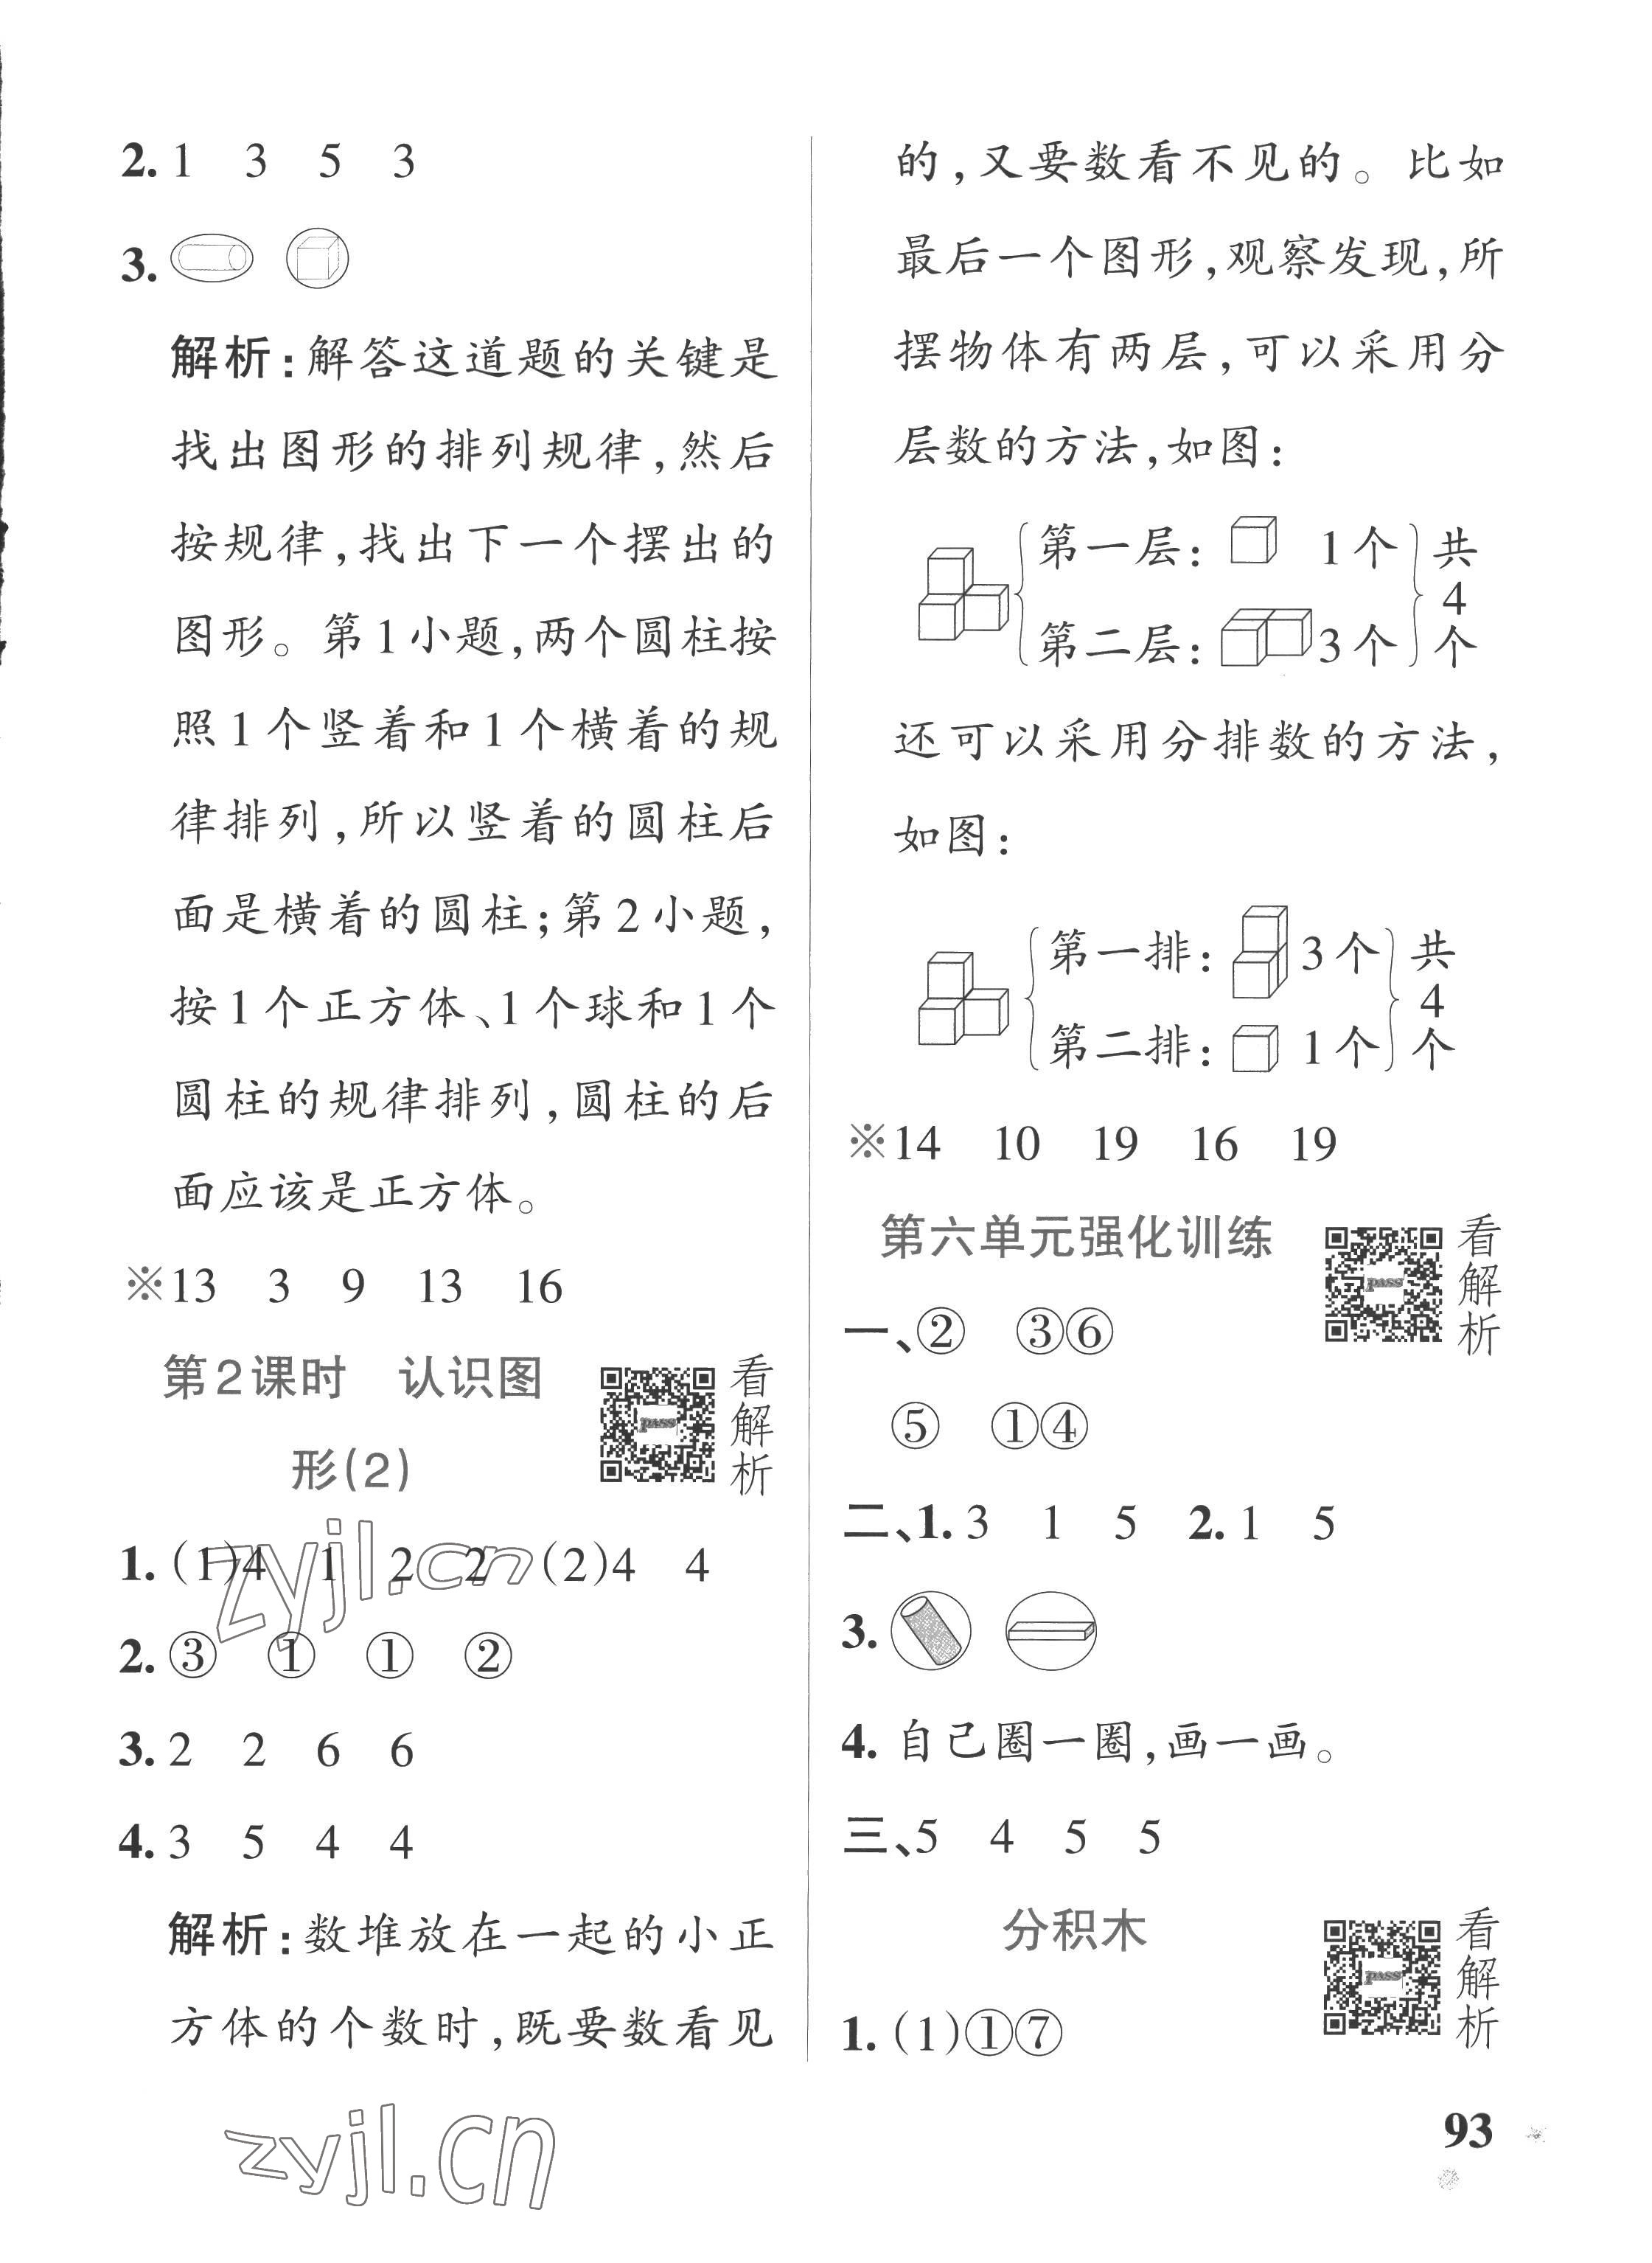 2. 1 3 5 3
3.
解析：解答这道题的关键是
找出图形的排列规律，然后
按规律，找出下一个摆出的
图形。第1小题，两个圆柱按
照1个竖着和1个横着的规
律排列，所以竖着的圆柱后
面是横着的圆柱；第2小题，
按1个正方体、1个球和1个
圆柱的规律排列，圆柱的后
面应该是正方体。
※13 3 9 13 16
第2课时 认识图
形(2)
看解析
pass
1. (1)4 1 2 2 (2)4 4
2. ③ ① ① ②
3. 2 2 6 6
4. 3 5 4 4
解析：数堆放在一起的小正
方体的个数时，既要数看见
的，又要数看不见的。比如
最后一个图形，观察发现，所
摆物体有两层，可以采用分
层数的方法，如图：
第一层： 1个
第二层： 3个
共4个
还可以采用分排数的方法，
如图：
第一排： 3个
第二排： 1个
共4个
※14 10 19 16 19
第六单元强化训练
看解析
pass
一、② ③⑥
⑤ ①④
二、1. 3 1 5 2. 1 5
3.
4. 自己圈一圈，画一画。
三、5 4 5 5
分积木
看解析
pass
1. (1)①⑦
93
zyjl.cn
zyjl.cn